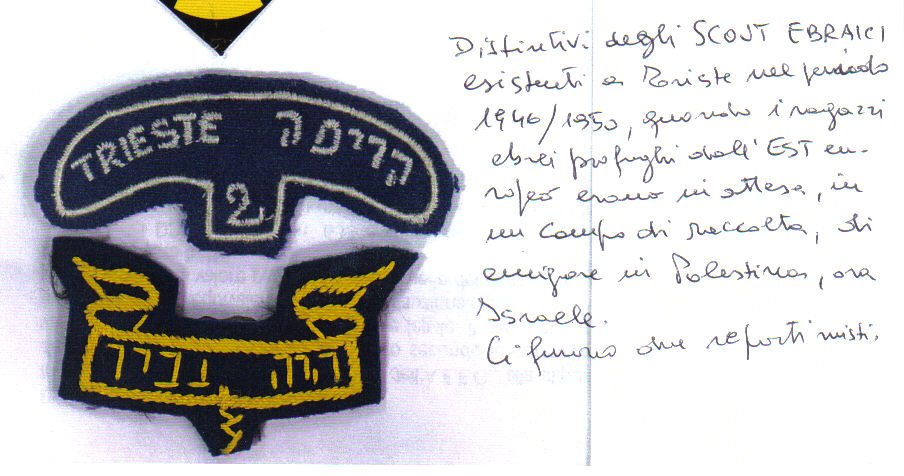 TRIESTE קדימה
2
היה נכון
Distintivi degli SCOUT EBRAICI
esistenti a Trieste nel periodo
1946/1950, quando i ragazzi
ebrei profughi dall'EST eu-
ropeo erano in attesa, in
un campo di raccolta, di
emigrare in Palestina, ora
Israele.
Ci furono due reparti misti.